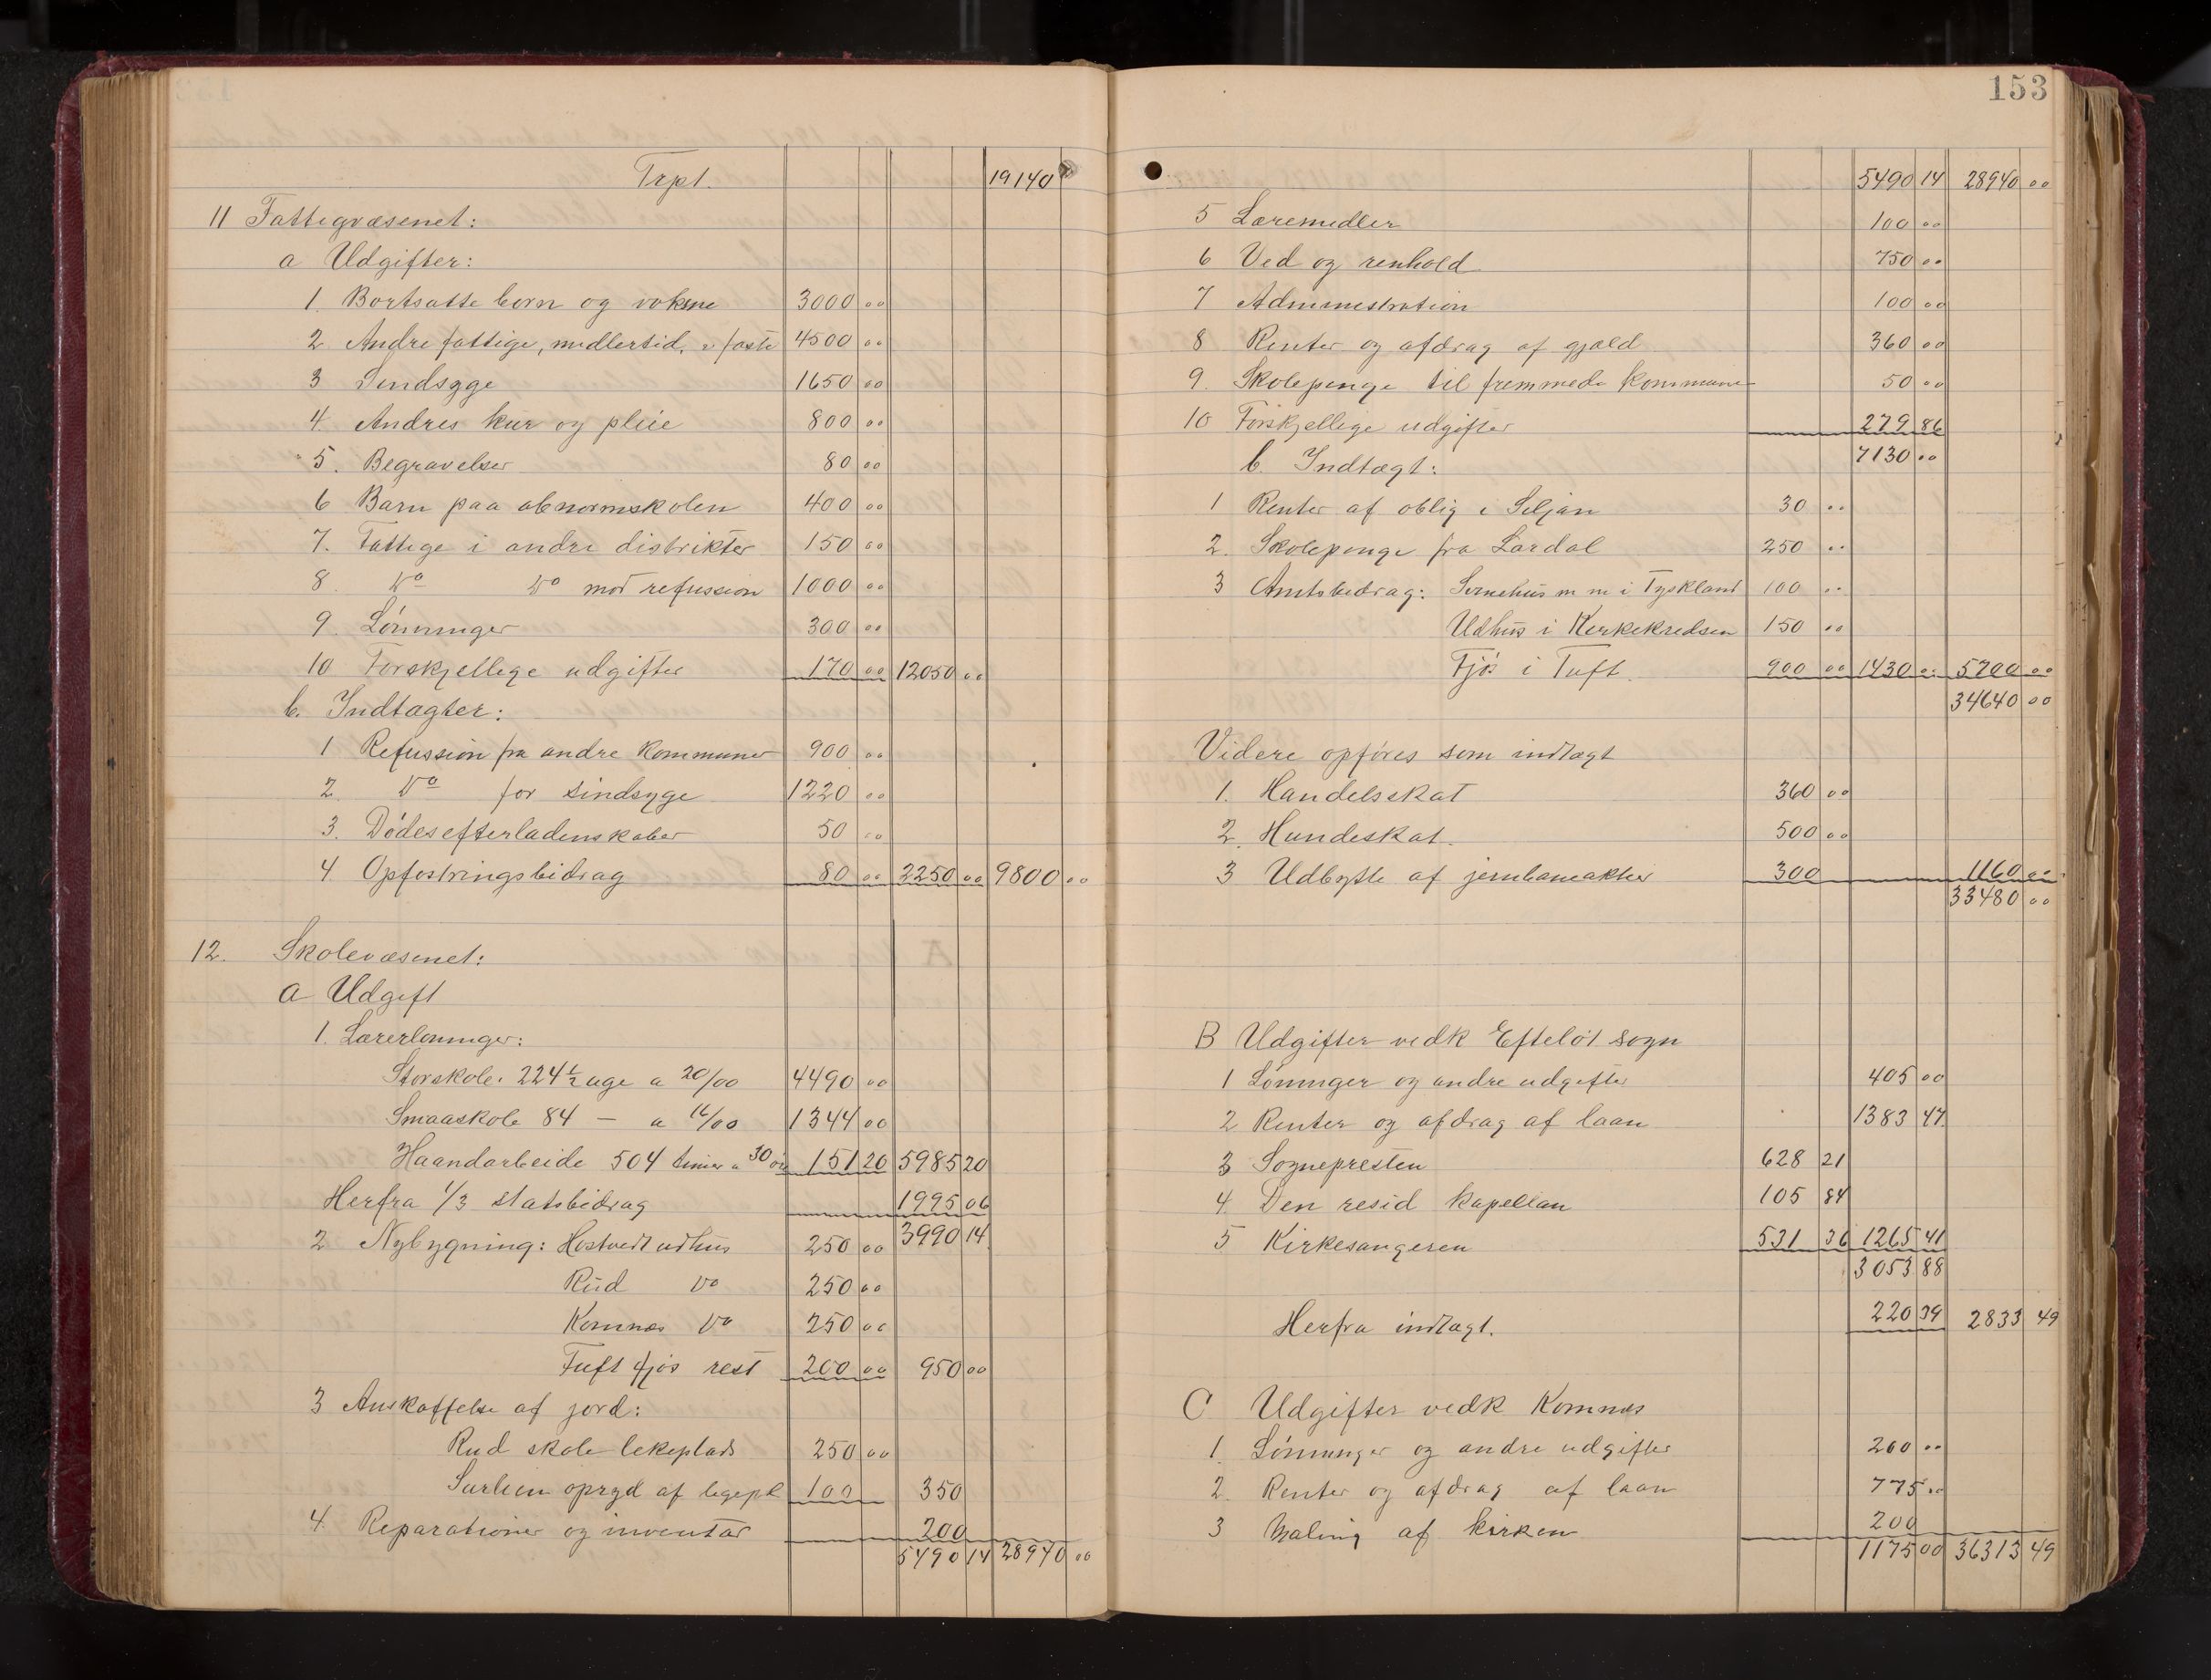 Trpt. 19140
11 Fattigvæsenet:
a Udgifter:
1. Bortsatte born og voksne 3000 00
2 Andre fattige, midlertid. o faste 4500 00
3 Sindsyge 1650 00
4. Andres kur og pleie 800 00
5. Begravelser 80 00
6 Barn paa abnormskolen 400 00
7. Fattige i andre distrikter 150 00
8 Do Do mod refussion 1000 00
9. Lønninger 300 00
10 Forskjellige udgifter 170 00 12050 00
b. Indtægter:
1 Refussion fra andre kommuner 900 00
2 Do for sindsyge 1220 00
3. Dødesefterladenskaber 50 00
4 Opfostringsbidrag 80 00 2250 00 9800 00
12. Skolevæsenet:
a Udgift
1. Lærerlønninger:
Storskole. 224 1/2 uge a 20/00 4490 00
Smaaskole 84 — a 16/00 1344 00
Haandarbeide 504 timer a 30 øre 151 20 5985 20
Herfra 1/3 statsbidrag 1995 06
3990 14
2 Nybygning: Hostvedt udhus 250 00
Rud Do 250 00
Komnes Do 250 00
Tuft fjøs rest 200 00 950 00
3 Anskaffelse af jord:
Rud skole lekeplads 250 00
opryd af legepl 100 350
4. Reparationer og inventar 200
5490 14 28940 00
153
5490 14 28940 00
5 Læremidler 100 00
6 Ved og renhold 750 00
7 Administration 100 00
8 Renter og afdrag af gjæld 360 00
9. Skolepenge til fremmede kommuner 50 00
10 Forskjellige udgifter 279 86
7130 00
b. Indtægt:
1 Renter af oblig i Seljan 30 00
2. Skolepenge fra Lardal 250 00
3 Amtsbidrag: m m i Tyskland 100 00
Udhus i Kirkekredsen 150 00
Fjøs i Tuft. 900 00 1430 00 5700 00
34640 00
Videre opføres som indtægt
1. Handelsskat 360 00
2. Hundeskat. 500 00
3 Udbytte af jernbaneaktier 300 1160 00
33480 00
B Udgifter vedk Efteløt sogn
1 Lønninger og andre udgifter 405 00
2 Renter og afdrag af laan 1383 47
3 Sognepresten 628 21
4. Den resid kapellan 105 84
5 Kirkesangeren 531 36 1265 41
3053 88
Herfra indtægt. 220 39 2833 49
C Udgifter vedk Komnes
1. Lønninger og andre udgifter 200 00
2. Renter og afdrag af laan 775 00
3 Maling af kirken 200
1175 00 36313 49